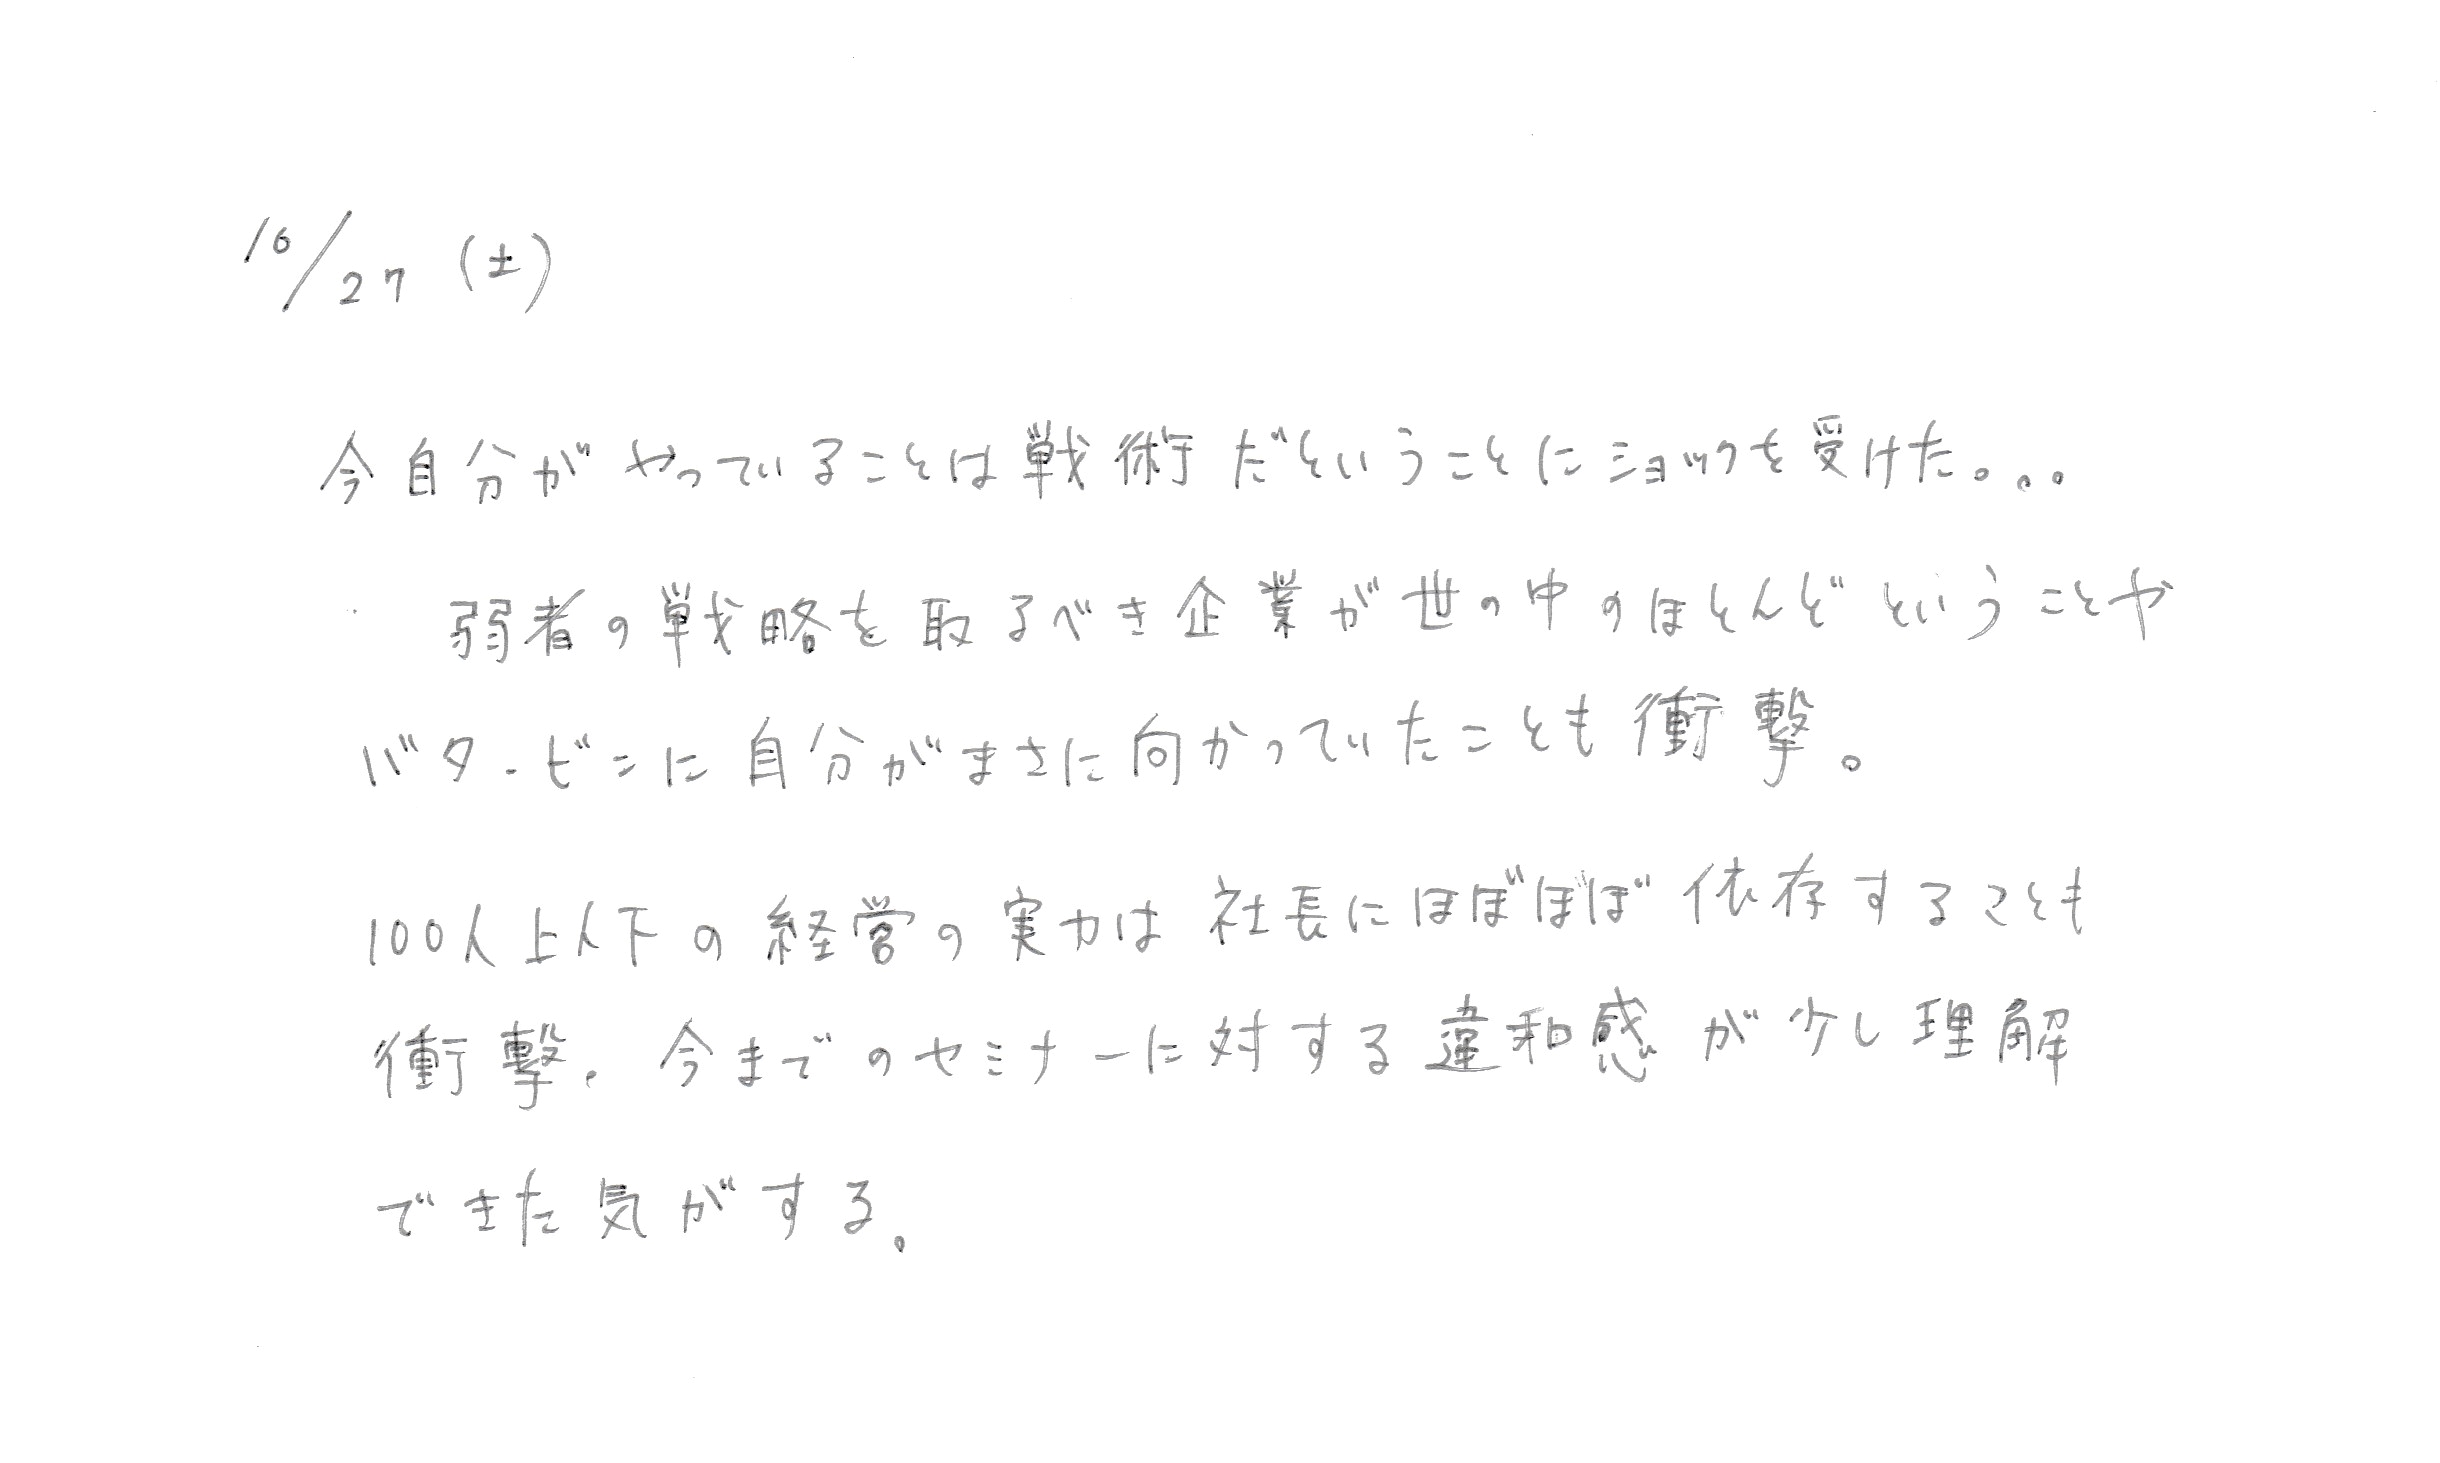 10/27 (土)
今自分がやっていることは戦術だということにショックを受けた。。。
弱者の戦略を取るべき企業が世の中のほとんどということや
バタ-ビンに自分がまさに向かっていたことも衝撃。
100人以下の経営の実力は社長にほぼほぼ依存することも
衝撃。今までのセミナーに対する違和感が少し理解
できた気がする。